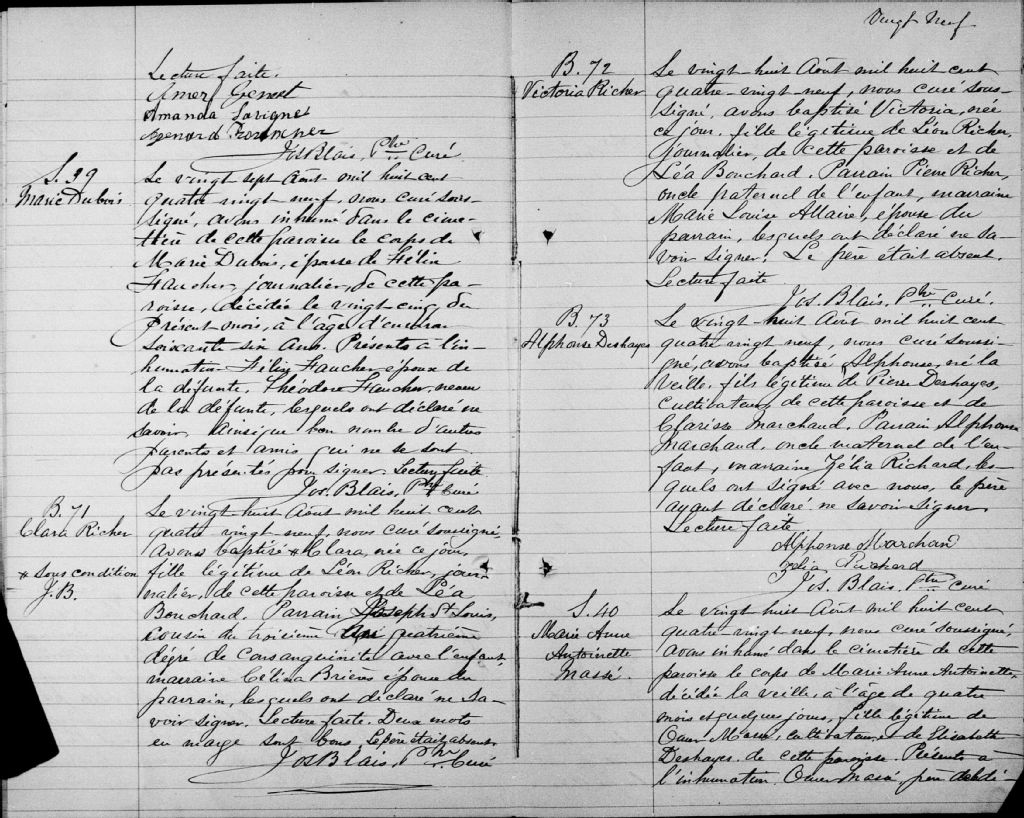 Vingt Neuf
Lecture faite.
Amanda Lavigne
Jos Blais, Ptre Curé
S. 39
Marie Dubois
Le vingt sept Août mil huit cent
quatre vingt neuf, nous curé sous-
signé, avons inhumé dans le cime-
tière de cette paroisse le corps de
Marie Dubois, épouse de Félix
Faucher, journalier, de cette pa-
roisse, décédée le vingt-cinq du
présent mois, à l'âge d'environ
soixante-six Ans. Présents à l'in-
humation Félix Faucher époux de
la défunte, Théodore Faucher, neveu
de la défunte, lesquels ont déclaré ne
savoir. Ainsi que bon nombre d'autres
parents et amis qui ne se sont
pas présentés pour signer. Lecture faite
Jos. Blais, Ptre Curé
B. 71
Clara Richer
* sous condition
J.B.
Le vingt huit Août mil huit cent
quatre vingt neuf, nous curé soussigné,
avons baptisé * Clara, née ce jour,
fille légitime de Léon Richer, jour-
nalier, de cette paroisse et de Léa
Bouchard. Parrain Joseph St Louis,
cousin du troisième au quatrième
dégré de consanguinité avec l'enfant,
marraine Célina Brière épouse du
parrain, lesquels ont déclaré ne sa-
voir signer. Lecture faite. Deux mots
en marge sont bons. Le père était absent.
Jos Blais, Ptre Curé
B. 72
Victoria Richer
Le vingt-huit Août mil huit cent
quatre-vingt-neuf, nous curé sous-
signé, avons baptisé Victoria, née
ce jour, fille légitime de Léon Richer,
journalier, de cette paroisse et de
Léa Bouchard. Parrain Pierre Richer,
oncle paternel de l'enfant, marraine
Marie Louise Allaire, épouse du
parrain, lesquels ont déclaré ne sa-
voir signer. Le père était absent.
Lecture faite
Jos. Blais, Ptre Curé.
B. 73
Alphonse Deshayes
Le vingt-huit Août mil huit cent
quatre vingt neuf, nous curé soussi-
gné, avons baptisé Alphonse, né la
veille, fils légitime de Pierre Deshayes,
cultivateur, de cette paroisse et de
Clarisse Marchand. Parrain Alphonse
Marchand, oncle maternel de l'en-
fant, marraine Zélia Richard, les-
quels ont signé avec nous, le père
ayant déclaré ne savoir signer.
Lecture faite
Alphonse Marchan
Zelia Richard
Jos. Blais, Ptre curé
S. 40
Marie Anne
Antoinette
Massé.
Le vingt huit Août mil huit cent
quatre-vingt-neuf, nous curé soussigné,
avons inhumé dans le cimetière de cette
paroisse le corps de Marie Anne Antoinette,
décédée la veille, à l'âge de quatre
mois et quelques jours, fille légitime de
Omer Massé, cultivateur, de Elisabeth
Deshayes, de cette paroisse. Présents à
l'inhumation, Omer Massé, père de la dé-